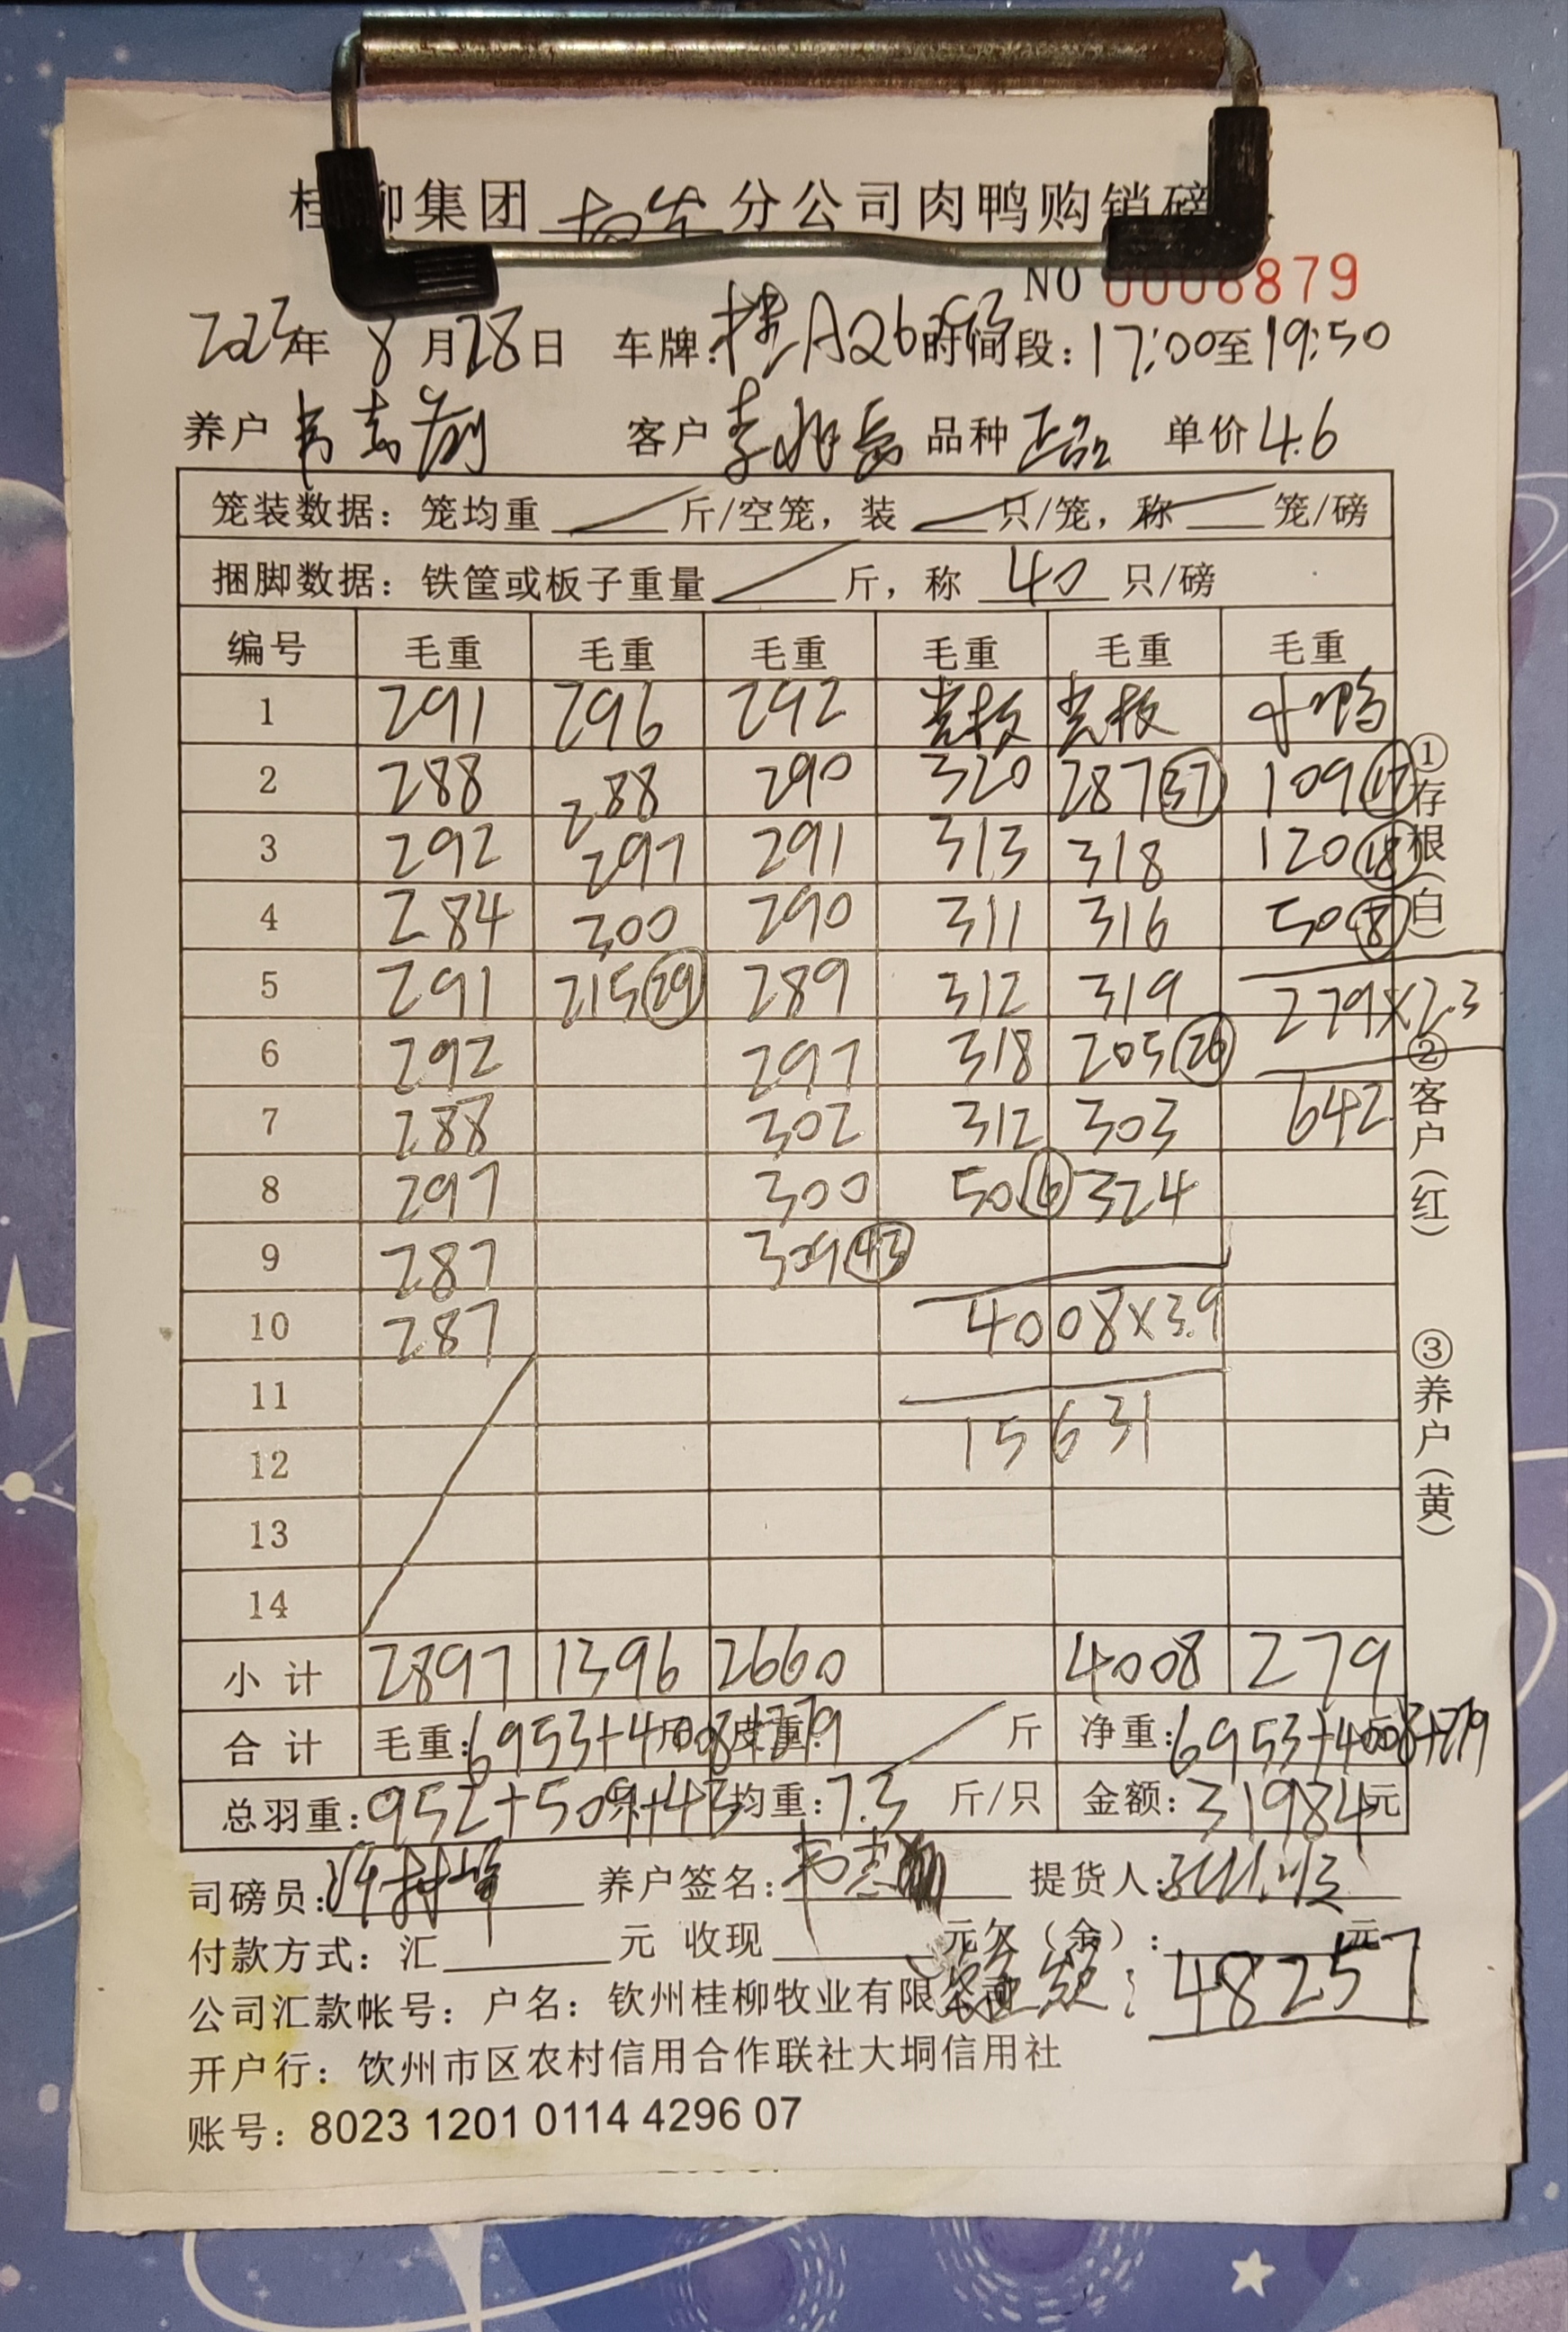 柳集团 分公司肉鸭购销磅
NO 0006879
2023年 8月28日 车牌:桂A26 时间段:17:00至19:50
养户 韦志 客户 李 品种 正品 单价 4.6
笼装数据: 笼均重 斤/空笼, 装 只/笼, 称 笼/磅
捆脚数据: 铁筐或板子重量 斤, 称 40 只/磅
编号 毛重 毛重 毛重 毛重 毛重 毛重
1 291 296 292 鸭
2 288 288 290 320 287 37 109 17
3 292 297 291 313 318 120 18
4 284 300 290 311 316 50 8
5 291 215 29 289 312 319 279×2.3
6 292 297 318 205 26
7 288 302 312 303 642
8 297 300 50 6 324
9 287 309 43
10 287 4008×3.9
11
12 15631
13
14
小计 2897 1396 2660 4008 279
合计 毛重:6953+4008+279 斤 皮重: 斤 净重:6953+4008+279
总羽重:952+509+43 均重:7.3 斤/只 金额:31984元
司磅员: 养户签名:韦志 提货人:
付款方式: 汇 元 收现 元欠(余): 元
公司汇款帐号: 户名: 钦州桂柳牧业有限公司 : 48257
开户行: 钦州市区农村信用合作联社大垌信用社
账号: 8023 1201 0114 4296 07
①存根(白)
②客户(红)
③养户(黄)